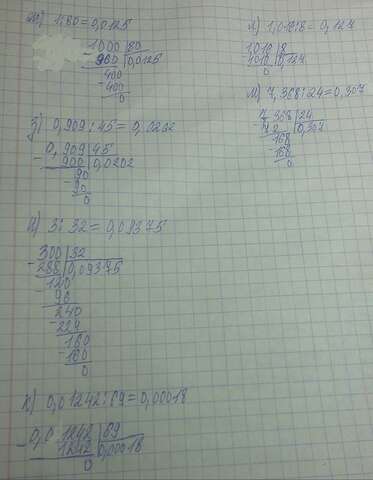 ж) 1:80=0,0125
1000 | 80
- 960 | 0,0125
400
- 400
0
з) 0,909 : 45 = 0,0202
- 0,909 | 45
900 | 0,0202
- 90
90
0
и) 3 : 32 = 0,09375
- 300 | 32
288 | 0,09375
- 120
96
- 240
- 224
160
- 160
0
к) 0,01242 : 69 = 0,00018
- 0,01242 | 69
1242 | 0,00018
0
л) 1,016:8 = 0,127
1,016 | 8
1016 | 0,127
0
м) 7,368 : 24 = 0,307
- 7 368 | 24
72 | 0,307
- 168
- 168
0